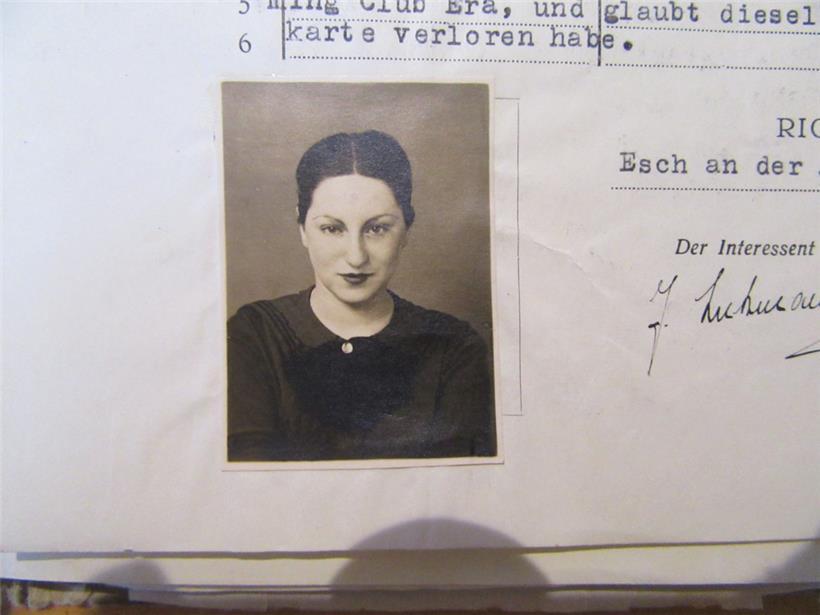 5 ming Club Era, und glaubt diesel
6 karte verloren habe.
RIC
Esch an der
Der Interessent
J.